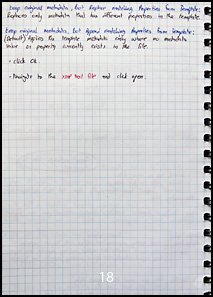 keep original metadata, but Replace matching Properties from Template:
Replaces only metadata that has different properties in the template.
Keep original metadata, but Append matching Properties from Template:
(Default) Applies the template metadata only where no metadata
value or property currently exists in the file.
· click OK.
· Navigate to the xmp text file and click open.
18